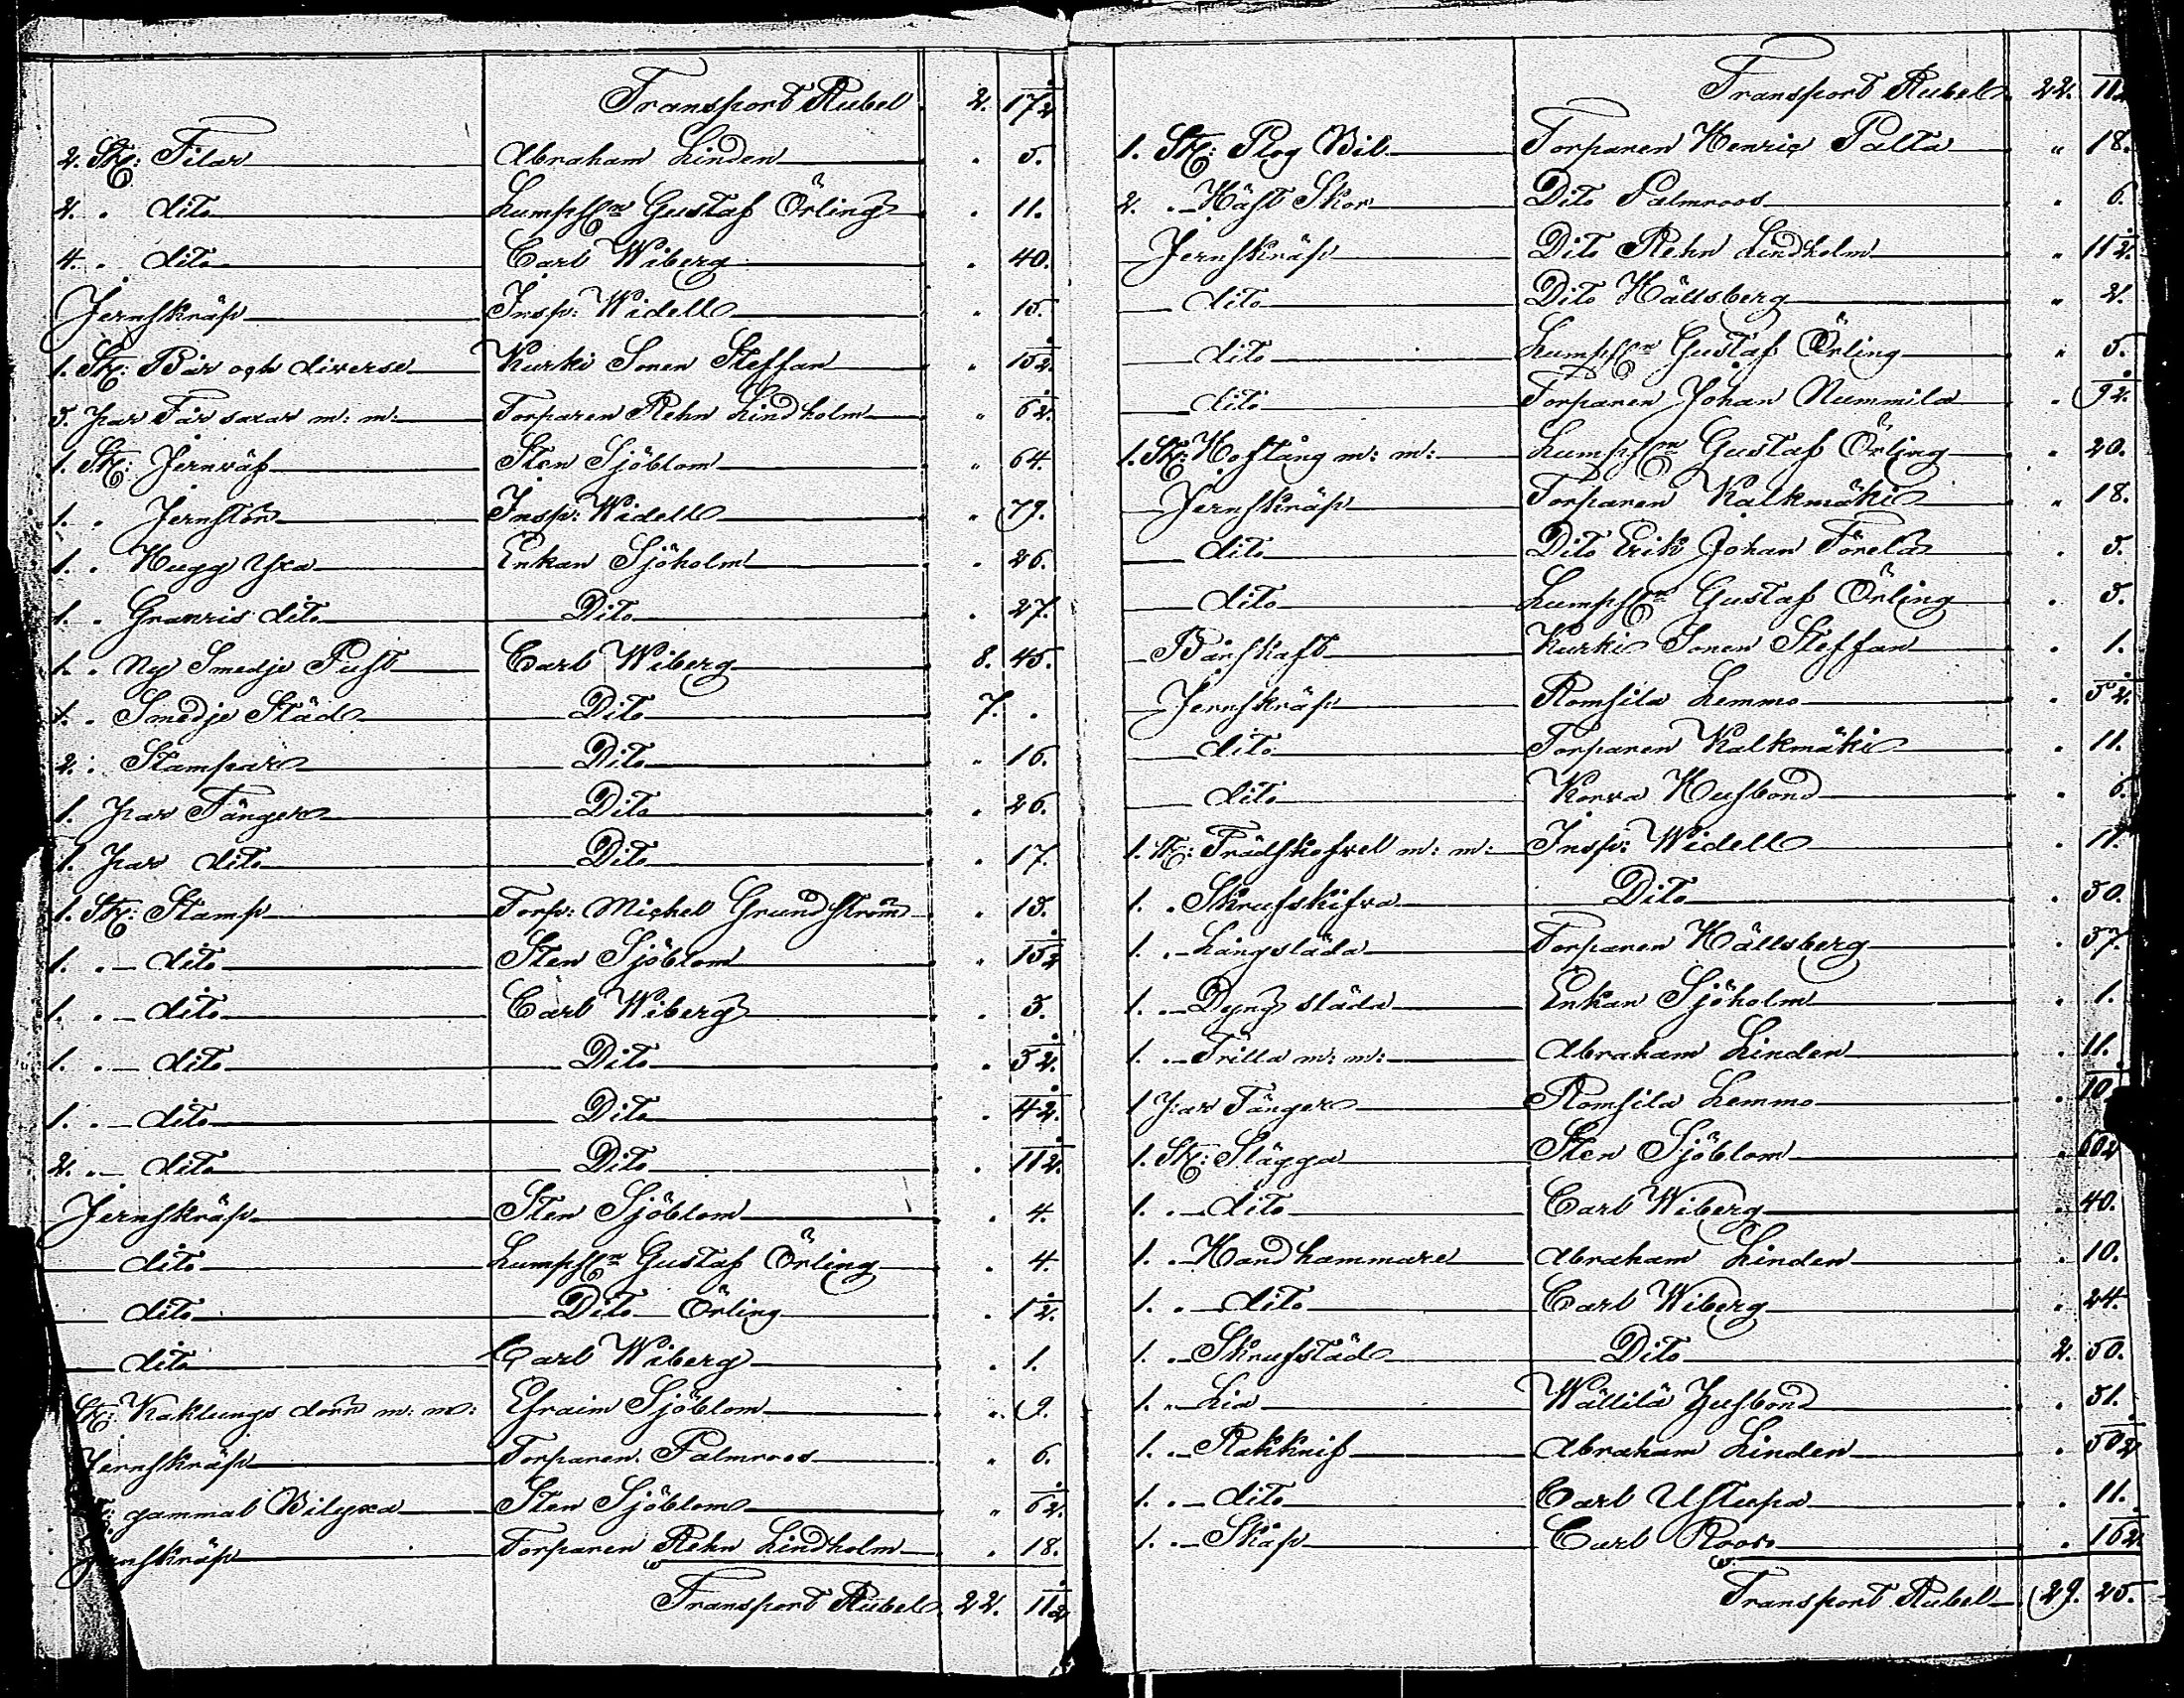 Transport Rubel 2. 17½
2. St: Filar Abraham Linden " 5.
2. " dito Lumpf:n Gustaf Örling " 11.
4. " dito Carl Wiberg " 40.
Jernskräp Insp: Widell " 15.
1. St: Bår och diverse Kurki Sonen Steffan " 15½
5. par Fårsaxar m: m: Torparen Rehn Lindholm " 6½
1. St: Jernräf Sten Sjöblom " 64.
1. " Jernstör Insp: Widell " 79.
1. " Hugg Yxa Enkan Sjöholm " 26.
1. " Granris dito Dito " 27.
1. " Ny Smedje Pust Carl Wiberg 8. 45.
1. " Smedje Städ Dito 7. "
2. " Stampar Dito " 16.
1. par Tänger Dito " 26.
1. par dito Dito " 17.
1. St: Stamp Torp: Michel Grundström " 15.
1. " dito Sten Sjöblom " 15½
1. " dito Carl Wiberg " 5.
1. " dito Dito " 5½
1. " dito Dito " 4½
2. " dito Dito " 11½
Jernskräp Sten Sjöblom " 4.
dito Lumpf:n Gustaf Örling " 4.
dito Dito Örling " 1½
dito Carl Wiberg " 1.
St: Kaklungs dörr m: m: Efraim Sjöblom " 9.
Jernskräp Torparen Palmroos " 6.
gammal Bilyxa Sten Sjöblom " 6½
Jernskräp Torparen Rehn Lindholm " 18.
Transport Rubel 22. 11½
Transport Rubel 22. 11
1. St: Plog Bil Torparen Henric Palta " 18.
2. " Häst Skor Dito Palmroos " 6.
Jernskräp Dito Rehn Lindholm " 11½
dito Dito Hällsberg " 2.
dito Lumpf:n Gustaf Örling " 5.
dito Torparen Johan Nummila " 9½
1. St: Hoftång m: m: Lumpf:n Gustaf Örling " 20.
Jernskräp Torparen Kalkmäki " 18.
dito Dito Erik Johan Förelä " 5.
dito Lumpf:n Gustaf Örling " 5.
Bårskaft Kurki Sonen Steffan " 1.
Jernskräp Romsila Lemmo " 5½
dito Torparen Kalkmäki " 11.
dito Korva Husbond " 6.
1. St: Trädskofvel m: m: Insp: Widell " 11.
1. " Skrufskifva Dito " 50.
1. " Långsläda Torparen Hällsberg " 37.
1. " Dyng släda Enkan Sjöholm " 1.
1. " Trilla m: m: Abraham Linden " 11.
1 par Tänger Romsila Lemmo " 10
1. St: Slägga Sten Sjöblom " 60½
1. " dito Carl Wiberg " 40.
1. " Handhammare Abraham Linden " 10.
1. " dito Carl Wiberg " 24.
1. " Skrufstäd Dito 2. 50.
1. " Lia Wällilä Husbond " 31.
1. " Rakknif Abraham Linden " 50½
1. " dito Carl Ustupa " 11.
1. " Skåp Carl Roos " 16½
Transport Rubel 29. 25.